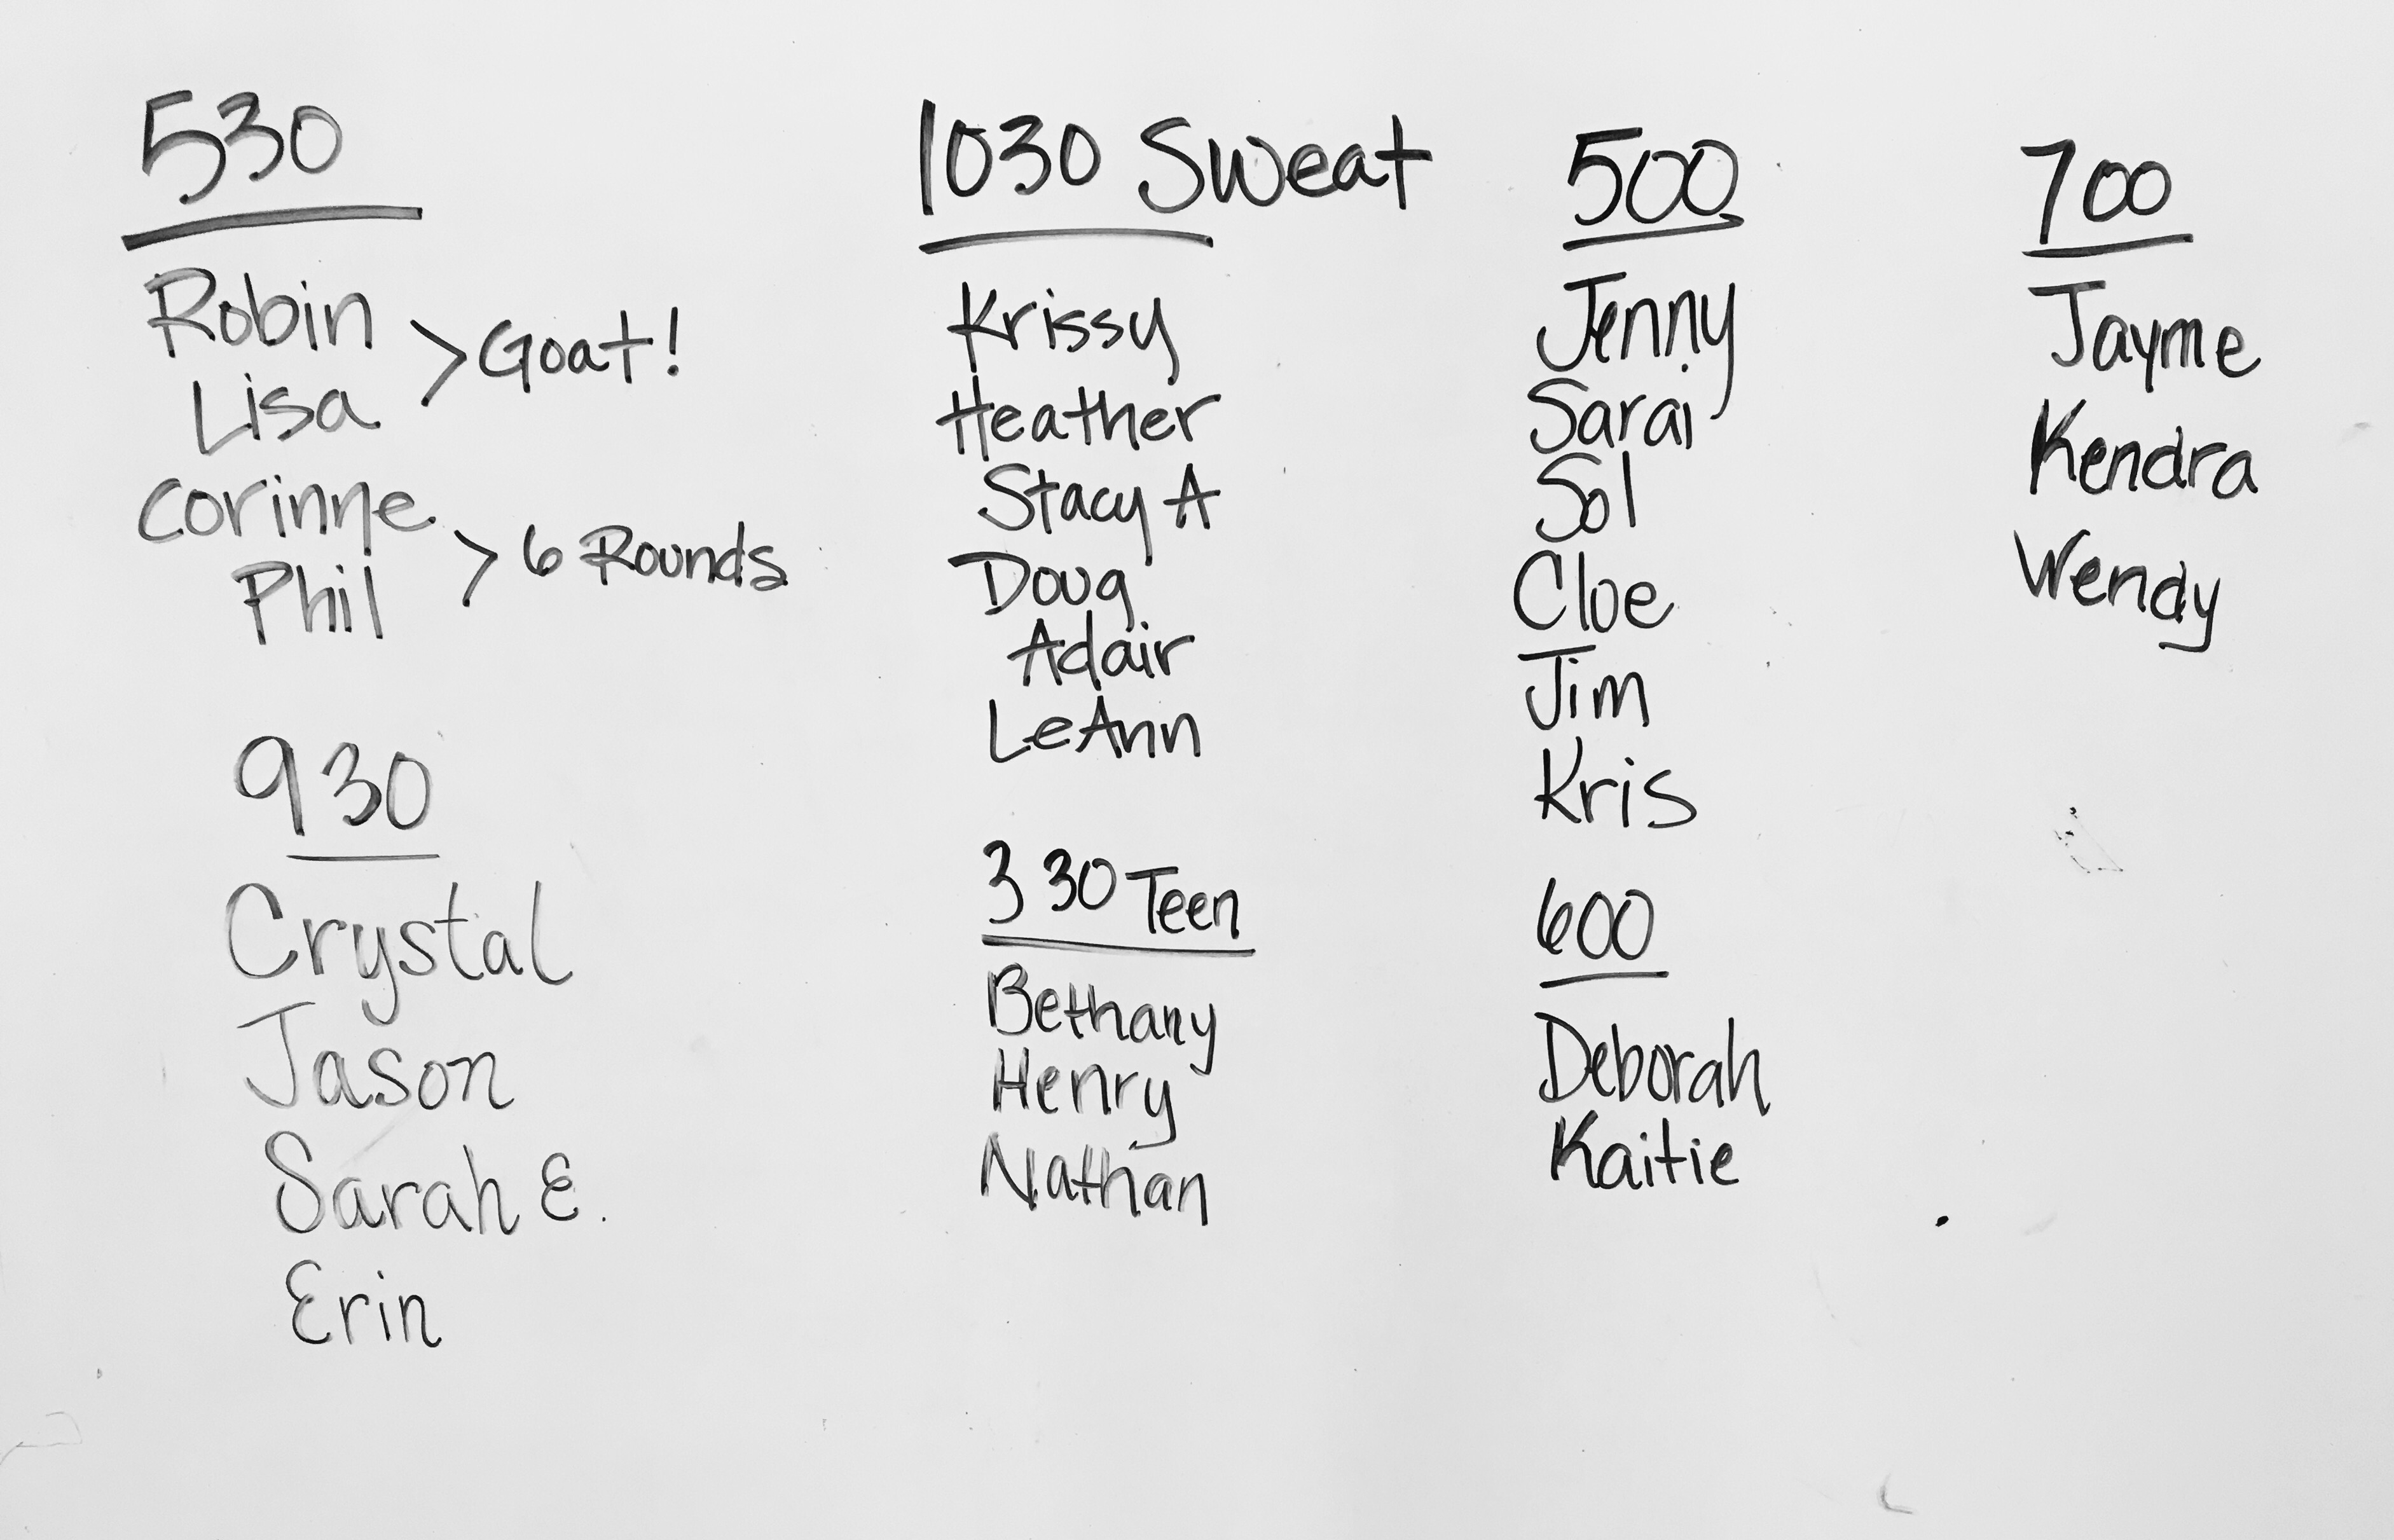 530
Robin
Lisa
> Goat!
Corinne
Phil
> 6 Rounds
930
Crystal
Jason
Sarah E.
Erin
1030 Sweat
Krissy
Heather
Stacy A
Doug
Adair
LeAnn
330 Teen
Bethany
Henry
Nathan
500
Jenny
Sarai
Sol
Cloe
Jim
Kris
600
Deborah
Kaitie
700
Jayme
Kendra
Wendy